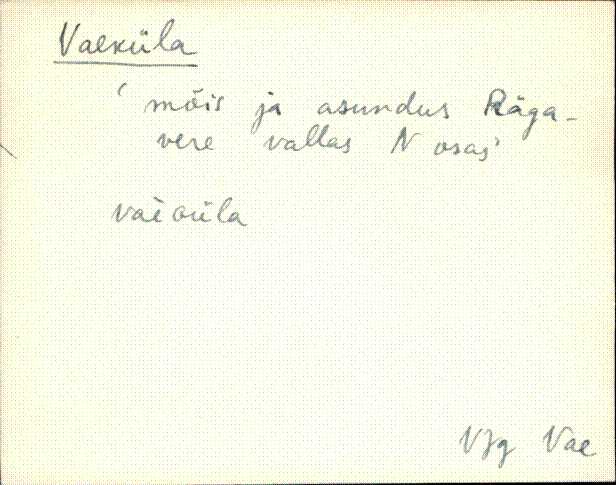 Vaeküla
‘ mõis ja asundus Räga-
vere vallas N osas’
vaiɢüla
VJg Vae